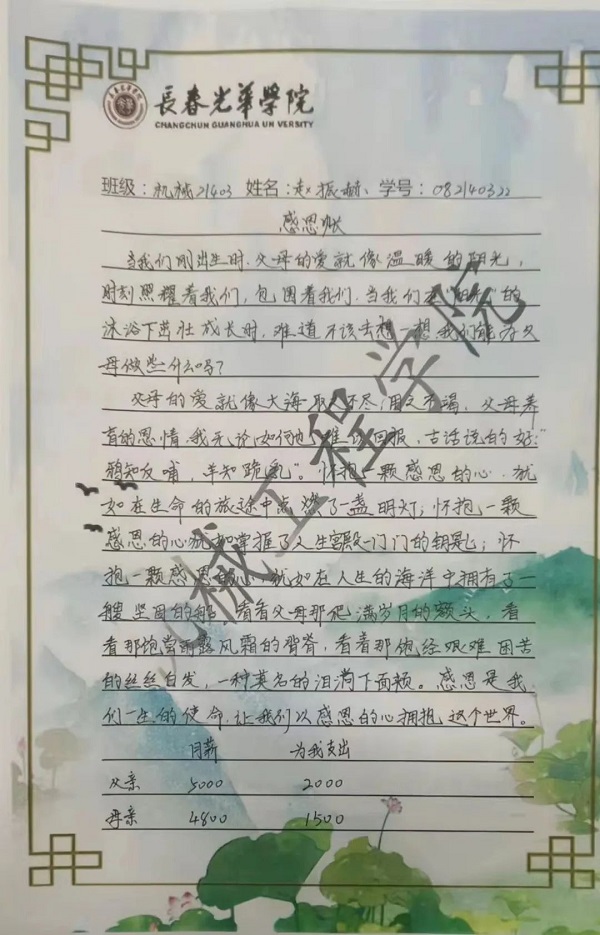 長春光華學院
CHANGCHUN GUANGHUA UN VERSITY
班级：机械21403 姓名：赵振赫 学号：082140322
感恩账
当我们刚出生时.父母的爱就像温暖的阳光，
时刻照耀着我们，包围着我们.当我们在"阳光"的
沐浴下茁壮成长时，难道不该去想一想.我们能为父
母做些什么吗？
父母的爱就像大海取之不尽，用之不竭，父母养
育的恩情.我无论如何也难以回报，古话说的好："
鸦知反哺，羊知跪乳"。怀抱一颗感恩的心.犹
如在生命的旅途中点燃了一盏明灯；怀抱一颗
感恩的心犹如掌握了人生宫殿一门门的钥匙；怀
抱一颗感恩的心.犹如在人生的海洋中拥有了一
艘坚固的船.看看父母那爬满岁月的额头，看
看那饱尝雨露风霜的脊脊，看着那饱经艰难困苦
的丝丝白发，一种莫名的泪淌下面颊。感恩是我
们一生的使命.让我们以感恩的心拥抱这个世界。
月薪 为我支出
父亲 5000 2000
母亲 4800 1500
机械工程学院